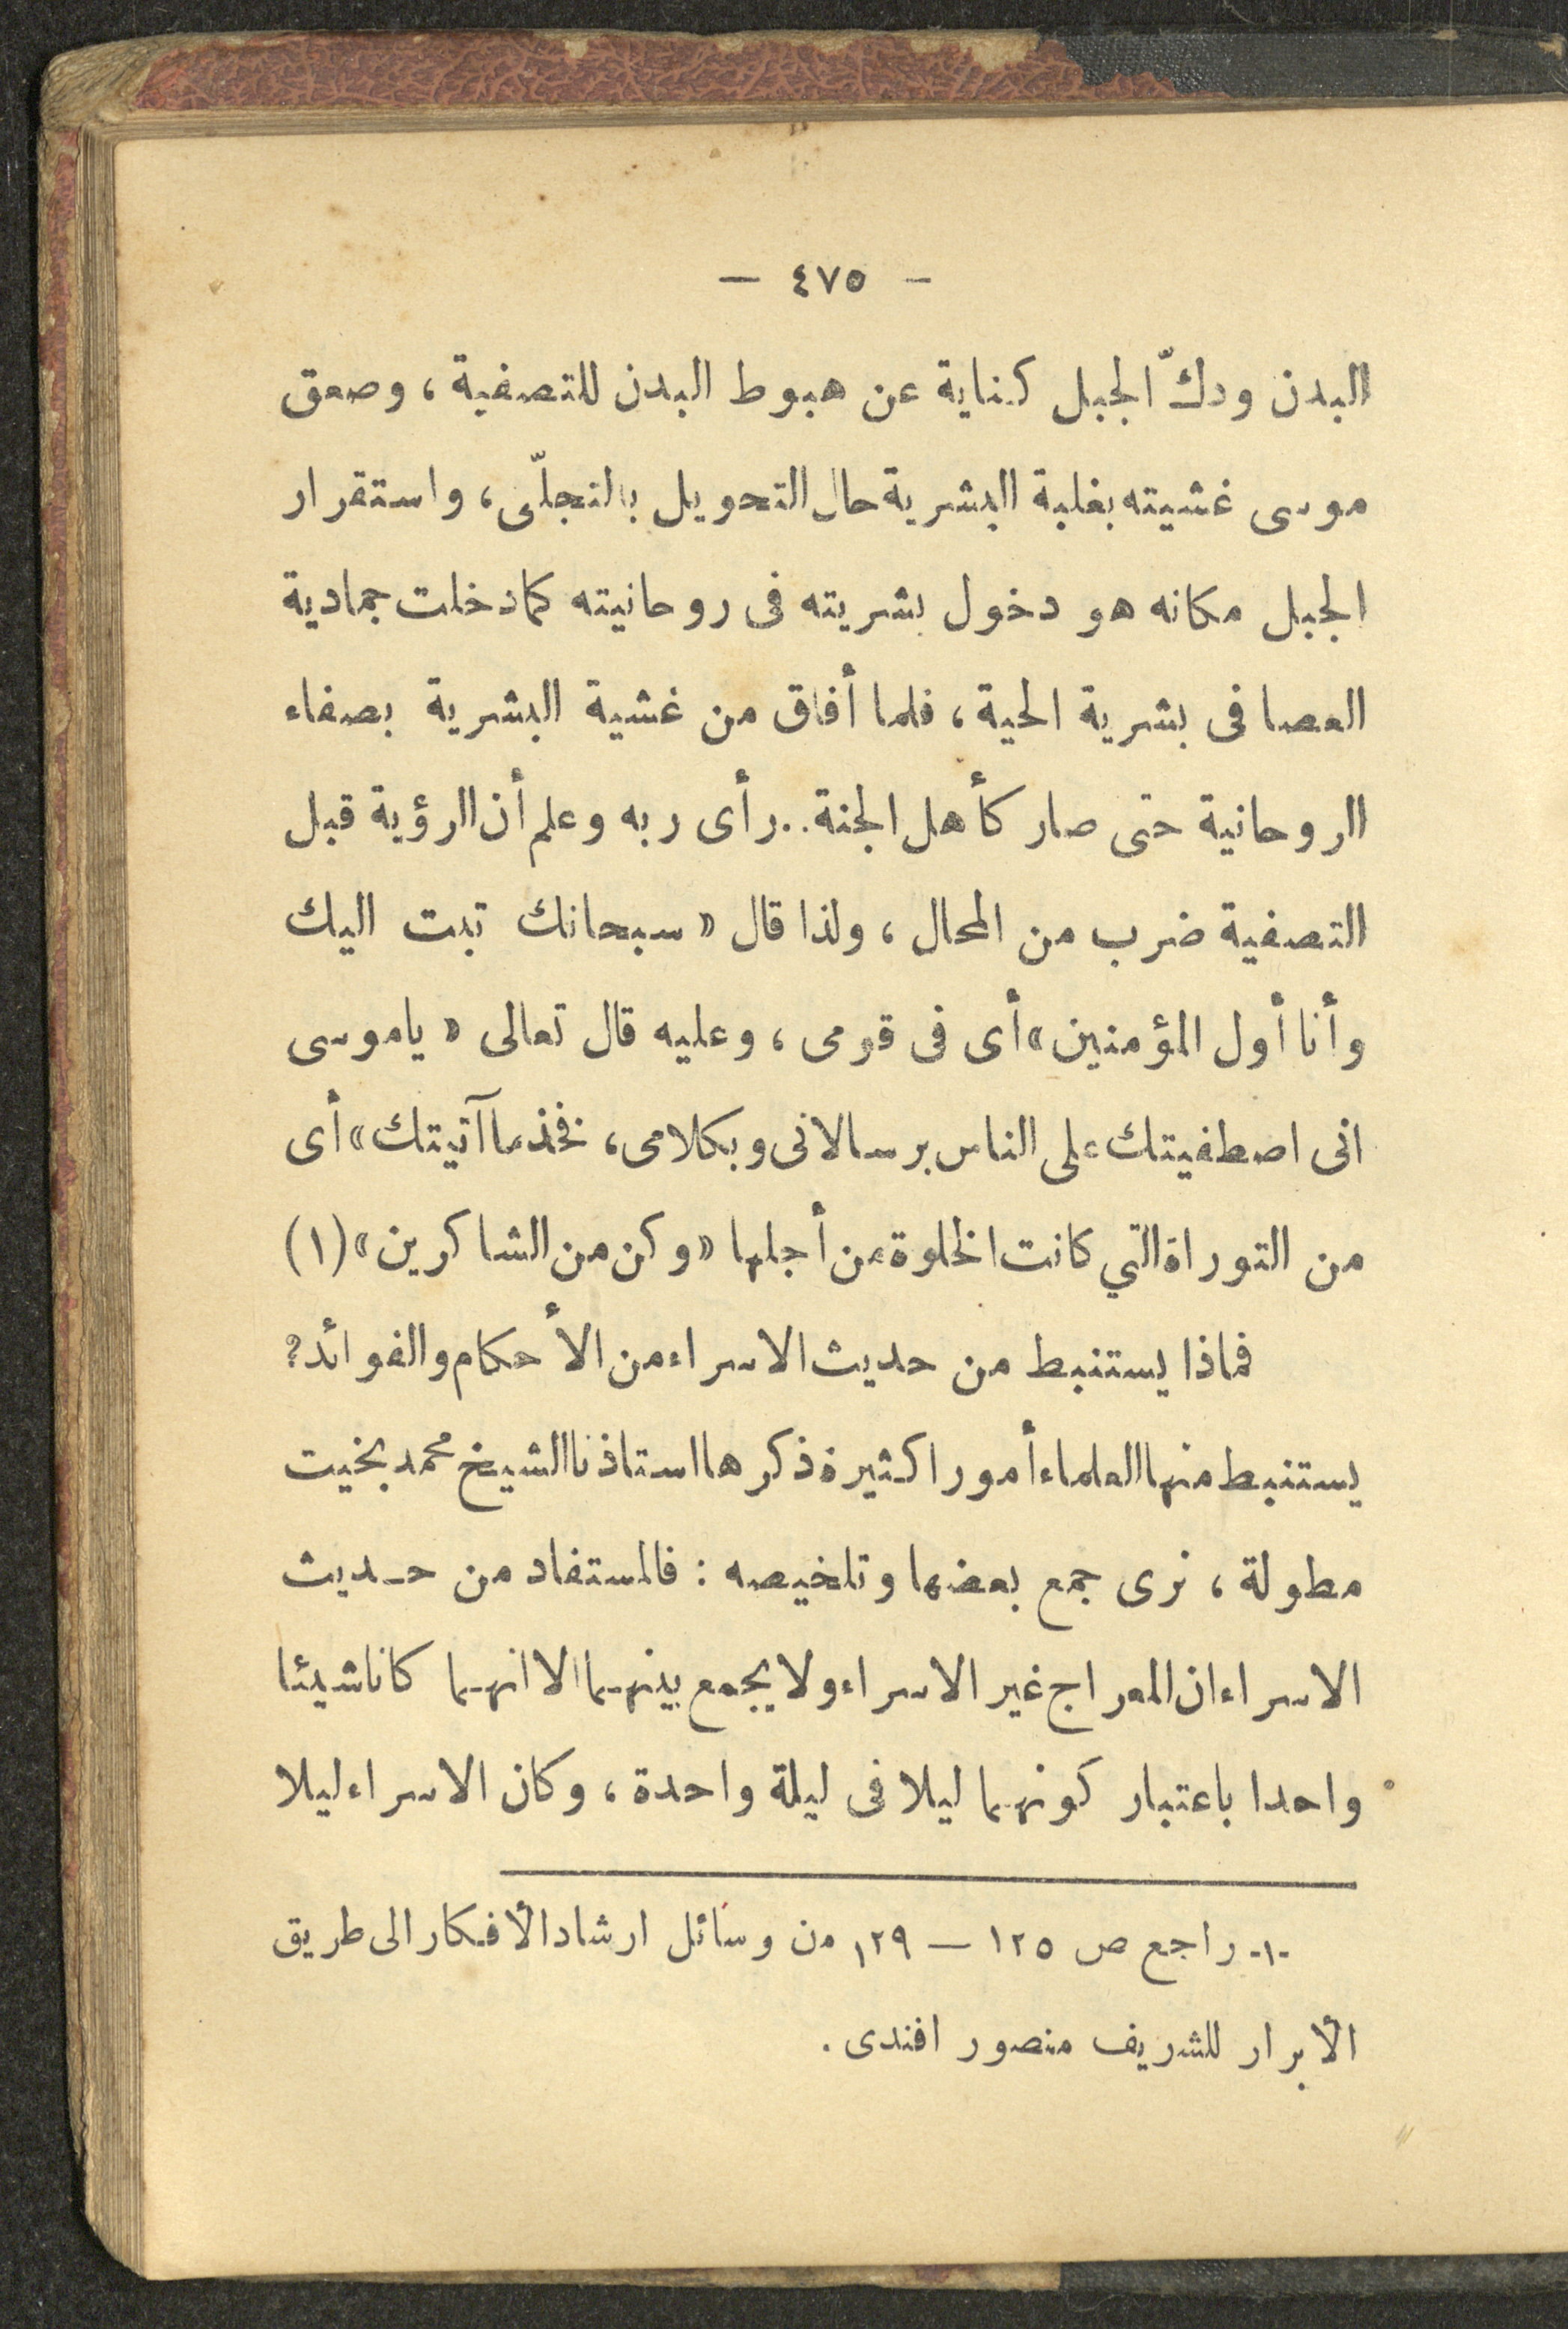 — ٤٧٥ —
البدن ودكّ الجبل كناية عن هبوط البدن للتصفية ، وصعق
موسى غشيته بغلبة البشرية حال التحويل بالتجلّى ، واستقرار
الجبل مكانه هو دخول بشريته فى روحانيته كما دخلت جمادية
العصا فى بشرية الحية ، فلما أفاق من غشية البشرية بصفاء
الروحانية حتى صار كأهل الجنة .. رأى ربه وعلم أن الرؤية قبل
التصفية ضرب من المحال ، ولذا قال « سبحانك تبت اليك
وأنا أول المؤمنين » أى فى قومى ، وعليه قال تعالى « ياموسى
انى اصطفيتك على الناس برسالاتى وبكلامى ، فخذ ما آتيتك » أى
من التوراة التي كانت الخلوة من أجلها « وكن من الشاكرين » (١)
فماذا يستنبط من حديث الاسراء من الأحكام والفوائد؟
يستنبط منها العلماء أمورا كثيرة ذكرها استاذنا الشيخ محمد بخيت
مطولة ، نرى جمع بعضها وتلخيصه : فالمستفاد من حديث
الاسراء ان المعراج غير الاسراء ولا يجمع بينهما الا انهما كانا شيئا
واحدا باعتبار كونهما ليلا فى ليلة واحدة ، وكان الاسراء ليلا
-١- راجع ص ١٢٥ — ١٢٩ من وسائل ارشاد الأفكار الى طريق
الأبرار للشريف منصور افندى .